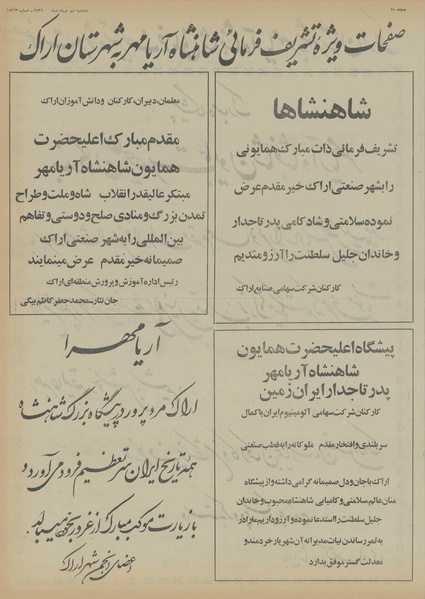 صفحه ۲۸
صفحات ویژهٔ تشریف فرمائی شاهنشاه آریامهر به شهرستان اراک
شاهنشاها
تشریف فرمائی ذات مبارک همایونی
را بشهر صنعتی اراک خیر مقدم عرض
نموده سلامتی و شادکامی پدر تاجدار
و خاندان جلیل سلطنت را آرزومندیم
کارکنان شرکت سهامی صنایع اراک
معلمان، دبیران، کارکنان ودانش آموزان اراک
مقدم مبارک اعلیحضرت
همایون شاهنشاه آریامهر
مبتکر عالیقدر انقلاب شاه وملت و طراح
تمدن بزرگ و منادی صلح و دوستی و تفاهم
بین المللی را به شهر صنعتی اراک
صمیمانه خیر مقدم عرض مینمایند
رئیس اداره آموزش و پرورش منطقه‌ای اراک
جان نثار محمد جعفر کاظم بیگی
پیشگاه اعلیحضرت همایون
شاهنشاه آریامهر
پدر تاجدار ایران زمین
کارکنان شرکت سهامی آلومینیوم ایران با کمال
سربلندی و افتخار مقدم ملوکانه را به قطب صنعتی
اراک با جان و دل صمیمانه گرامی داشته و از پیشگاه
منان عالم، سلامتی و کامیابی شاهنشاه محبوب و خاندان
جلیل سلطنت را استدعا نموده و آرزو داریم ما را در
به ثمر رساندن نیات مدبرانه آن شهریار خردمند و
معدلت گستر موفق بدارد
آریامهرا
اراک مرد پرور در پیشگاه بزرگ شاهنشاه
همهٔ تاریخ ایران سر تعظیم فرود می‌آورد و
با زیارت موکب مبارک از غرور بخود میبالد
اعضای انجمن شهر اراک